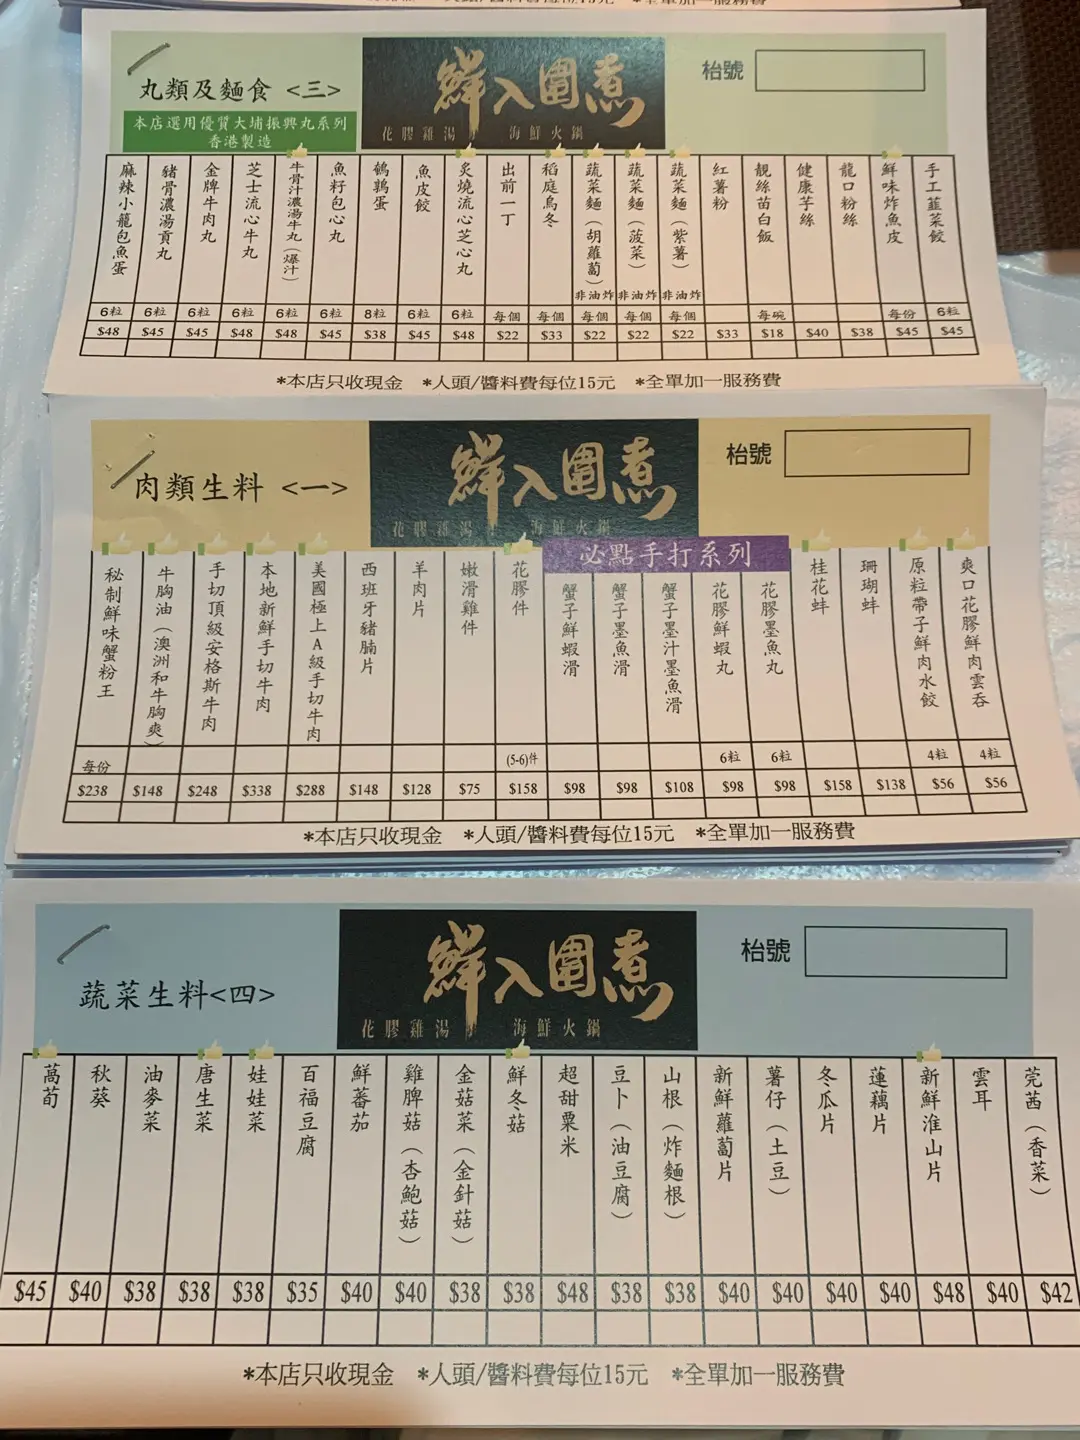 *全單加一服務費
丸類及麵食 <三>
本店選用優質大埔振興丸系列
香港製造
鮮入圍煮
花膠雞湯 海鮮火鍋
枱號
麻辣小籠包魚蛋 6粒 $48
豬骨濃湯貢丸 6粒 $45
金牌牛肉丸 6粒 $45
芝士流心牛丸 6粒 $48
牛骨汁濃湯牛丸（爆汁） 6粒 $48
魚籽包心丸 6粒 $45
鵪鶉蛋 8粒 $38
魚皮餃 6粒 $45
炙燒流心芝心丸 6粒 $48
出前一丁 每個 $22
稻庭烏冬 每個 $33
蔬菜麵（胡蘿蔔） 非油炸 每個 $22
蔬菜麵（菠菜） 非油炸 每個 $22
蔬菜麵（紫薯） 非油炸 每個 $22
紅薯粉 $33
靚絲苗白飯 每碗 $18
健康芋絲 $40
龍口粉絲 $38
鮮味炸魚皮 每份 $45
手工韮菜餃 6粒 $45
*本店只收現金 *人頭/醬料費每位15元 *全單加一服務費
肉類生料 <一>
鮮入圍煮
花膠雞湯 海鮮火鍋
枱號
必點手打系列
秘制鮮味蟹粉王 每份 $238
牛胸油（澳洲和牛胸爽） $148
手切頂級安格斯牛肉 $248
本地新鮮手切牛肉 $338
美國極上A級手切牛肉 $288
西班牙豬腩片 $148
羊肉片 $128
嫩滑雞件 $75
花膠件 (5-6)件 $158
蟹子鮮蝦滑 $98
蟹子墨魚滑 $98
蟹子墨汁墨魚滑 $108
花膠鮮蝦丸 6粒 $98
花膠墨魚丸 6粒 $98
桂花蚌 $158
珊瑚蚌 $138
原粒帶子鮮肉水餃 4粒 $56
爽口花膠鮮肉雲吞 4粒 $56
*本店只收現金 *人頭/醬料費每位15元 *全單加一服務費
蔬菜生料<四>
鮮入圍煮
花膠雞湯 海鮮火鍋
枱號
萵荀 $45
秋葵 $40
油麥菜 $38
唐生菜 $38
娃娃菜 $38
百福豆腐 $35
鮮蕃茄 $40
雞脾菇（杏鮑菇） $40
金菇菜（金針菇） $38
鮮冬菇 $38
超甜粟米 $48
豆卜（油豆腐） $38
山根（炸麵根） $38
新鮮蘿蔔片 $40
薯仔（土豆） $40
冬瓜片 $40
蓮藕片 $40
新鮮淮山片 $48
雲耳 $40
莞茜（香菜） $42
*本店只收現金 *人頭/醬料費每位15元 *全單加一服務費